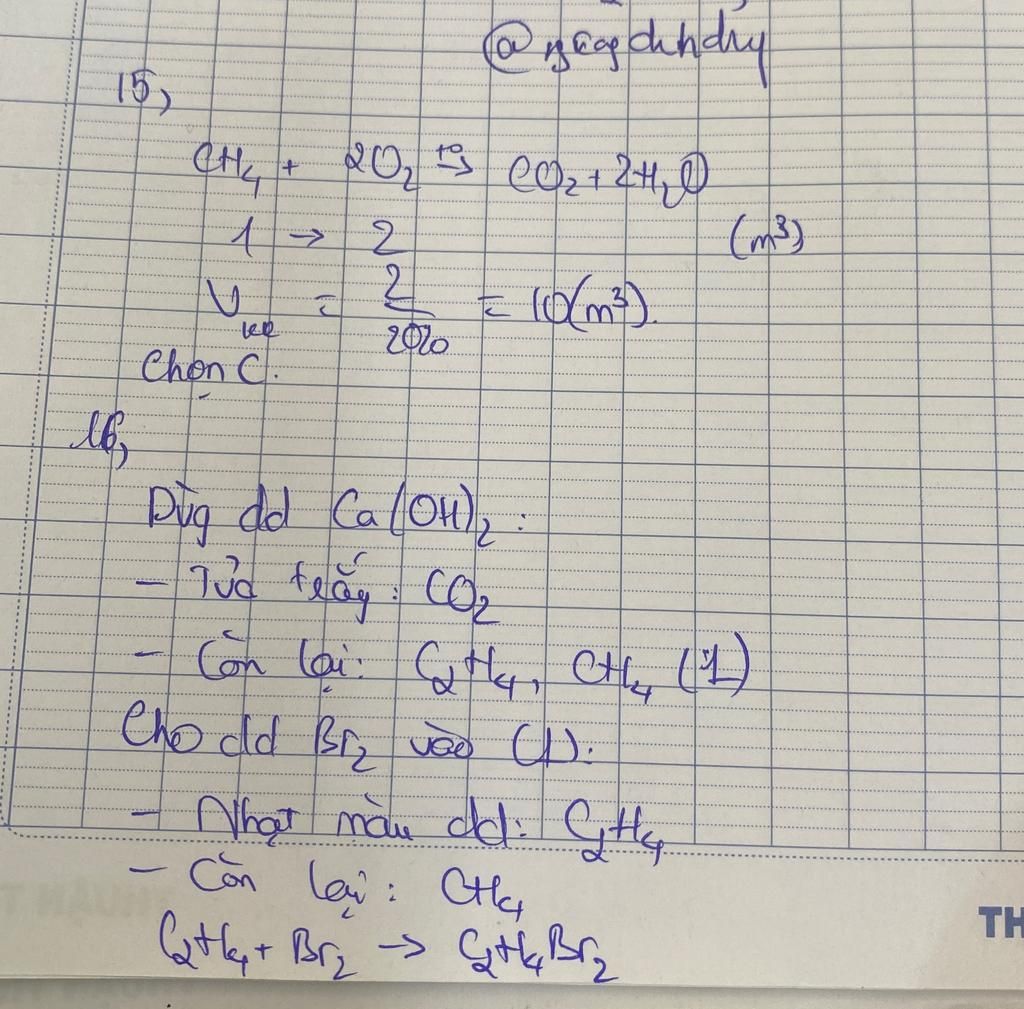 15,
CH₄ + 2O₂ t°→ CO₂ + 2H₂O
1 → 2 (m³)
V = 2/20% = 10(m³).
Chọn C.
16,
Dùg dd Ca(OH)₂:
- Tủa trắg: CO₂
- Còn lại: C₂H₄, CH₄ (1)
Cho dd Br₂ vào (1):
- Nhạt màu dd: C₂H₄
- Còn lại: CH₄
TH
C₂H₄ + Br₂ → C₂H₄Br₂